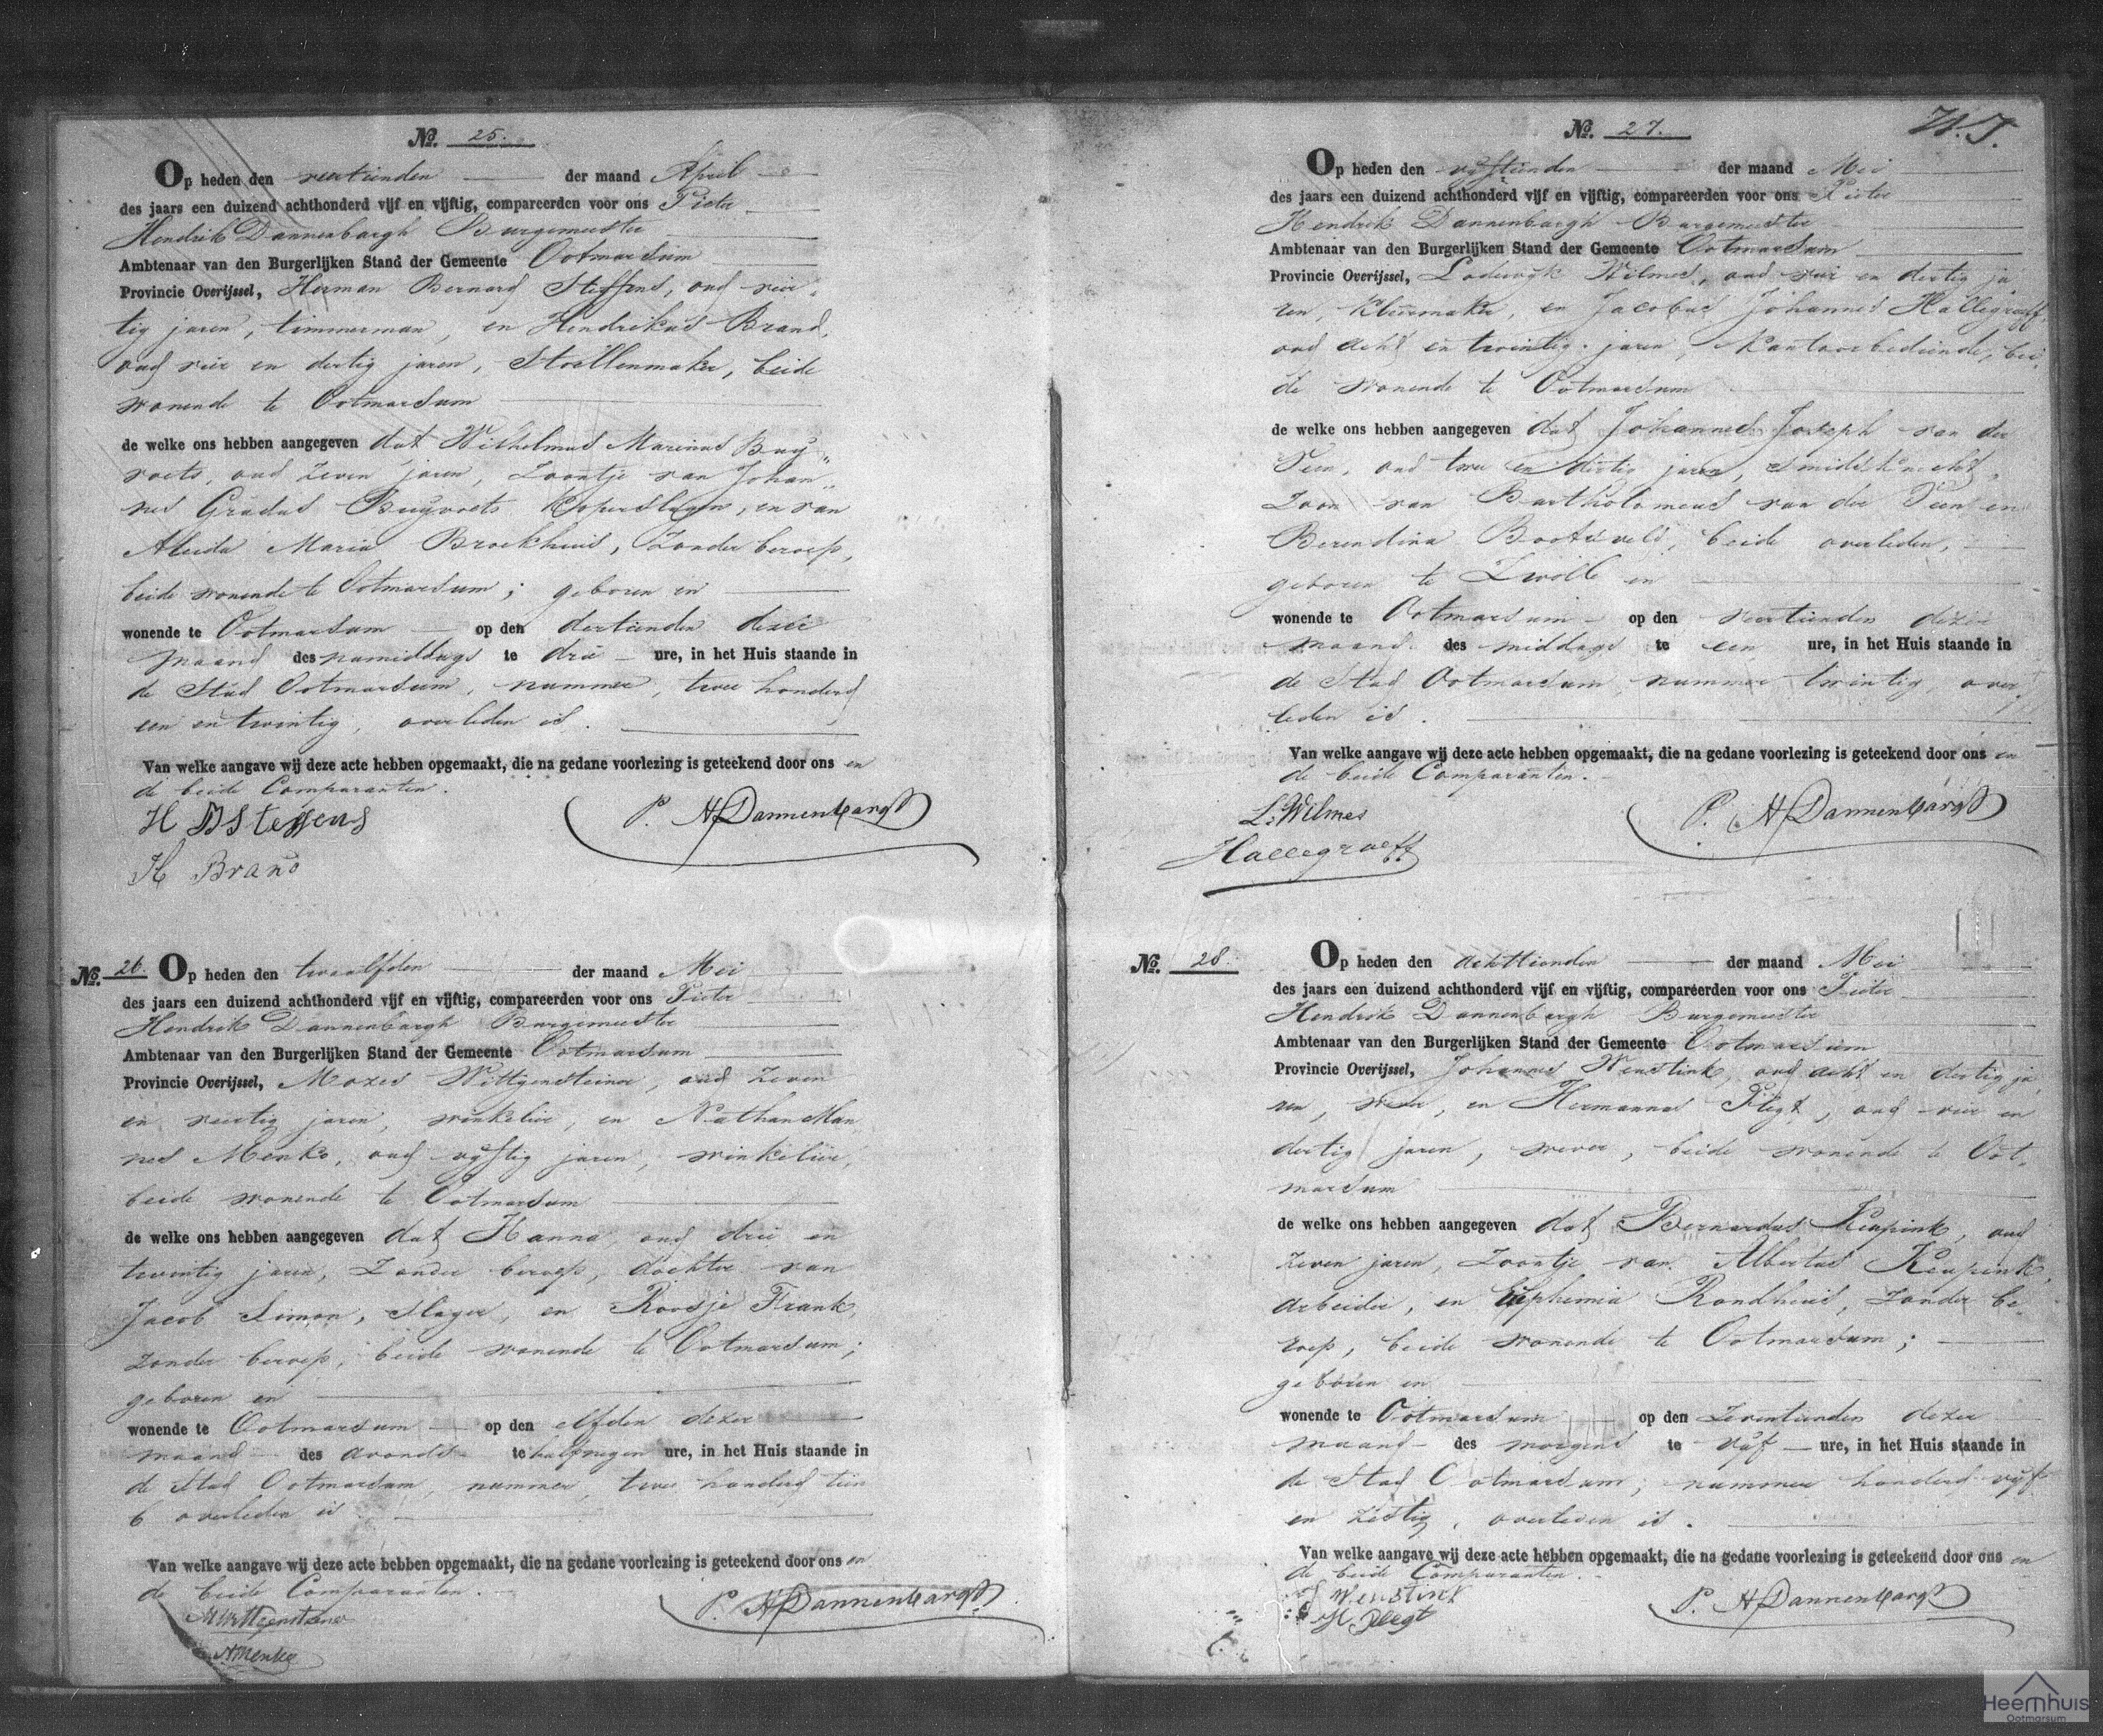 No. 25.
Op heden den veertienden der maand April
des jaars een duizend achthonderd vijf en vijftig, compareerden voor ons Pieter
Hendrik Dannenbargh Burgemeester
Ambtenaar van den Burgerlijken Stand der Gemeente Ootmarsum
Provincie Overijssel, Herman Bernard Steffens, oud veer„
tig jaren, timmerman, en Hendrikus Brand,
oud vier en dertig jaren, Stoellenmaker, beide
wonende te Ootmarsum
de welke ons hebben aangegeven dat Wilhelmus Marinus Buy„
voets, oud zeven jaren, Zoontje van Johan„
nes Gradus Buyvoets Koperslager, en van
Aleida Maria Broekhuis, Zonder beroep,
beide wonende te Ootmarsum; geboren en
wonende te Ootmarsum op den dertienden dezer
maand des namiddags te drie ure, in het Huis staande in
de Stad Ootmarsum, nummer, twee honderd
een en twintig, overleden is.
Van welke aangave wij deze acte hebben opgemaakt, die na gedane voorlezing is geteekend door ons en
de beide Comparanten.
H B Steffens
P. H Dannenbargh
H Brand
No. 26.
Op heden den twaalfden der maand Mei
des jaars een duizend achthonderd vijf en vijftig, compareerden voor ons Pieter
Hendrik Dannenbargh Burgemeester
Ambtenaar van den Burgerlijken Stand der Gemeente Ootmarsum
Provincie Overijssel, Mozes Wittgensteiner, oud zeven
en veertig jaren, winkelier, en Nathan Man
nes Menko, oud vijftig jaren, winkelier,
beide wonende te Ootmarsum
de welke ons hebben aangegeven dat Hanna, oud drie en
twintig jaren, Zonder beroep, dochter van
Jacob Simon, slager, en Roosje Frank,
zonder beroep, beide wonende te Ootmarsum;
geboren en
wonende te Ootmarsum op den elfden dezer
maand des avonds te halfnegen ure, in het Huis staande in
de Stad Ootmarsum, nummer, twee honderd tien
b overleden is.
Van welke aangave wij deze acte hebben opgemaakt, die na gedane voorlezing is geteekend door ons en
de beide Comparanten.
P. H Dannenbargh
M Wittgensteiner
N Menko
No. 27.
Op heden den vijftienden der maand Mei
des jaars een duizend achthonderd vijf en vijftig, compareerden voor ons Pieter
Hendrik Dannenbargh Burgemeester
Ambtenaar van den Burgerlijken Stand der Gemeente Ootmarsum
Provincie Overijssel, Lodewyk Wilmes, oud vier en dertig ja
ren, en Jacobus Johannes Hallegraeff,
oud acht en twintig jaren, Kantoorbediende, bei
de wonende te Ootmarsum
de welke ons hebben aangegeven dat Johannes Joseph van der
Veen, oud twee en dertig jaren, smidsknecht,
Zoon van Bartholomeus van der Veen en
Berendina Bootsveld, beide overleden,
geboren te Zwolle en
wonende te Ootmarsum op den veertienden dezer
maand des middags te een ure, in het Huis staande in
de Stad Ootmarsum nummer twintig, over
leden is.
Van welke aangave wij deze acte hebben opgemaakt, die na gedane voorlezing is geteekend door ons en
de beide Comparanten.
L. Wilmes
P. H Dannenbargh
Hallegraeff
No. 28.
Op heden den achttienden der maand Mei
des jaars een duizend achthonderd vijf en vijftig, compareerden voor ons Pieter
Hendrik Dannenbargh Burgemeester
Ambtenaar van den Burgerlijken Stand der Gemeente Ootmarsum
Provincie Overijssel, Johannes Wenstink, oud acht en dertig ja
ren, wever, en Hermannus Plegt, oud vier en
dertig jaren, wever, beide wonende te Oot„
marsum
de welke ons hebben aangegeven dat Bernardus Keupink, oud
zeven jaren, Zoontje van Albertus Keupink,
arbeider, en Euphemia Rondhuis, zonder be„
roep, beide wonende te Ootmarsum;
geboren en
wonende te Ootmarsum op den zeventienden dezer
maand des morgens te vijf ure, in het Huis staande in
de Stad Ootmarsum, nummer honderd vijf
en zestig, overleden is.
Van welke aangave wij deze acte hebben opgemaakt, die na gedane voorlezing is geteekend door ons en
de beide Comparanten.
J Wenstink
H. Plegt
P. H Dannenbargh
Heemhuis
Ootmarsum